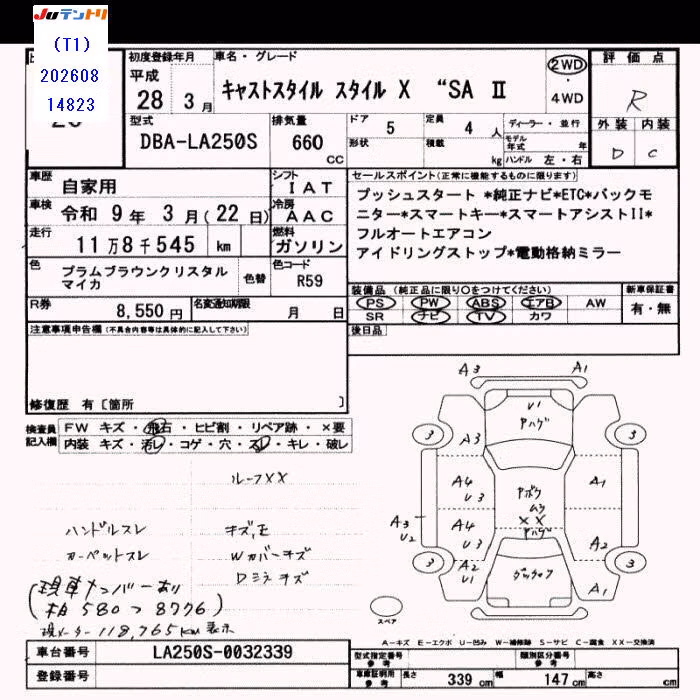 Juテントリ
(T1)
202608
14823
初度登録年月
平成
28 3月
車名・グレード
キャストスタイル スタイル X “SA Ⅱ
2WD
・
4WD
評価点
R
外装 内装
D C
型式
DBA-LA250S
排気量
660
CC
ドア 5
形状
定員 4 人
積載 kg
ディーラー・並行
モデル年式 年
ハンドル 左・右
車歴 自家用
シフト
IAT
車検 令和 9年 3月(22日)
冷房
AAC
走行 11万8千545 km
燃料
ガソリン
色 プラムブラウンクリスタル
マイカ
色替
色コード
R59
R券 8,550円
名変通知期限 月 日
セールスポイント(正常に機能するものに限ります)
プッシュスタート *純正ナビ*ETC*バックモ
ニター*スマートキー*スマートアシストII*
フルオートエアコン
アイドリングストップ*電動格納ミラー
装備品 (純正品に限り〇をつけてください)
新車保証書
PS PW ABS エアB AW
SR ナビ TV カワ
有・無
後日品
注意事項申告欄(不具合内容等は具体的に記入して下さい)
修復歴 有[箇所 ]
検査員
記入欄
FW キズ・飛石・ヒビ割・リペア跡・×要
内装 キズ・汚レ・コゲ・穴・スレ・キレ・破レ
ルーフXX
ハンドルスレ
カーペットスレ
Wカバーキズ
Dミラーキズ
(現車ナンバーあり
(柏 580 つ 8776)
現メーター 118,765km 表示
A3 A1
U1
ヤハゲ
3 3
A3
A4
U3
A1
A3
U2
A4
U3
XX
ヤハゲ
A2
A2
U1
A1
3 3
スペア
A-キズ E-エクボ U-凹み W-補修跡 S-サビ C-腐食 XX-交換済
車台番号 LA250S-0032339
登録番号
型式指定番号
参考
類別区分番号
参考
車庫証明用
参考
長さ 339 cm
幅 147 cm
高さ cm